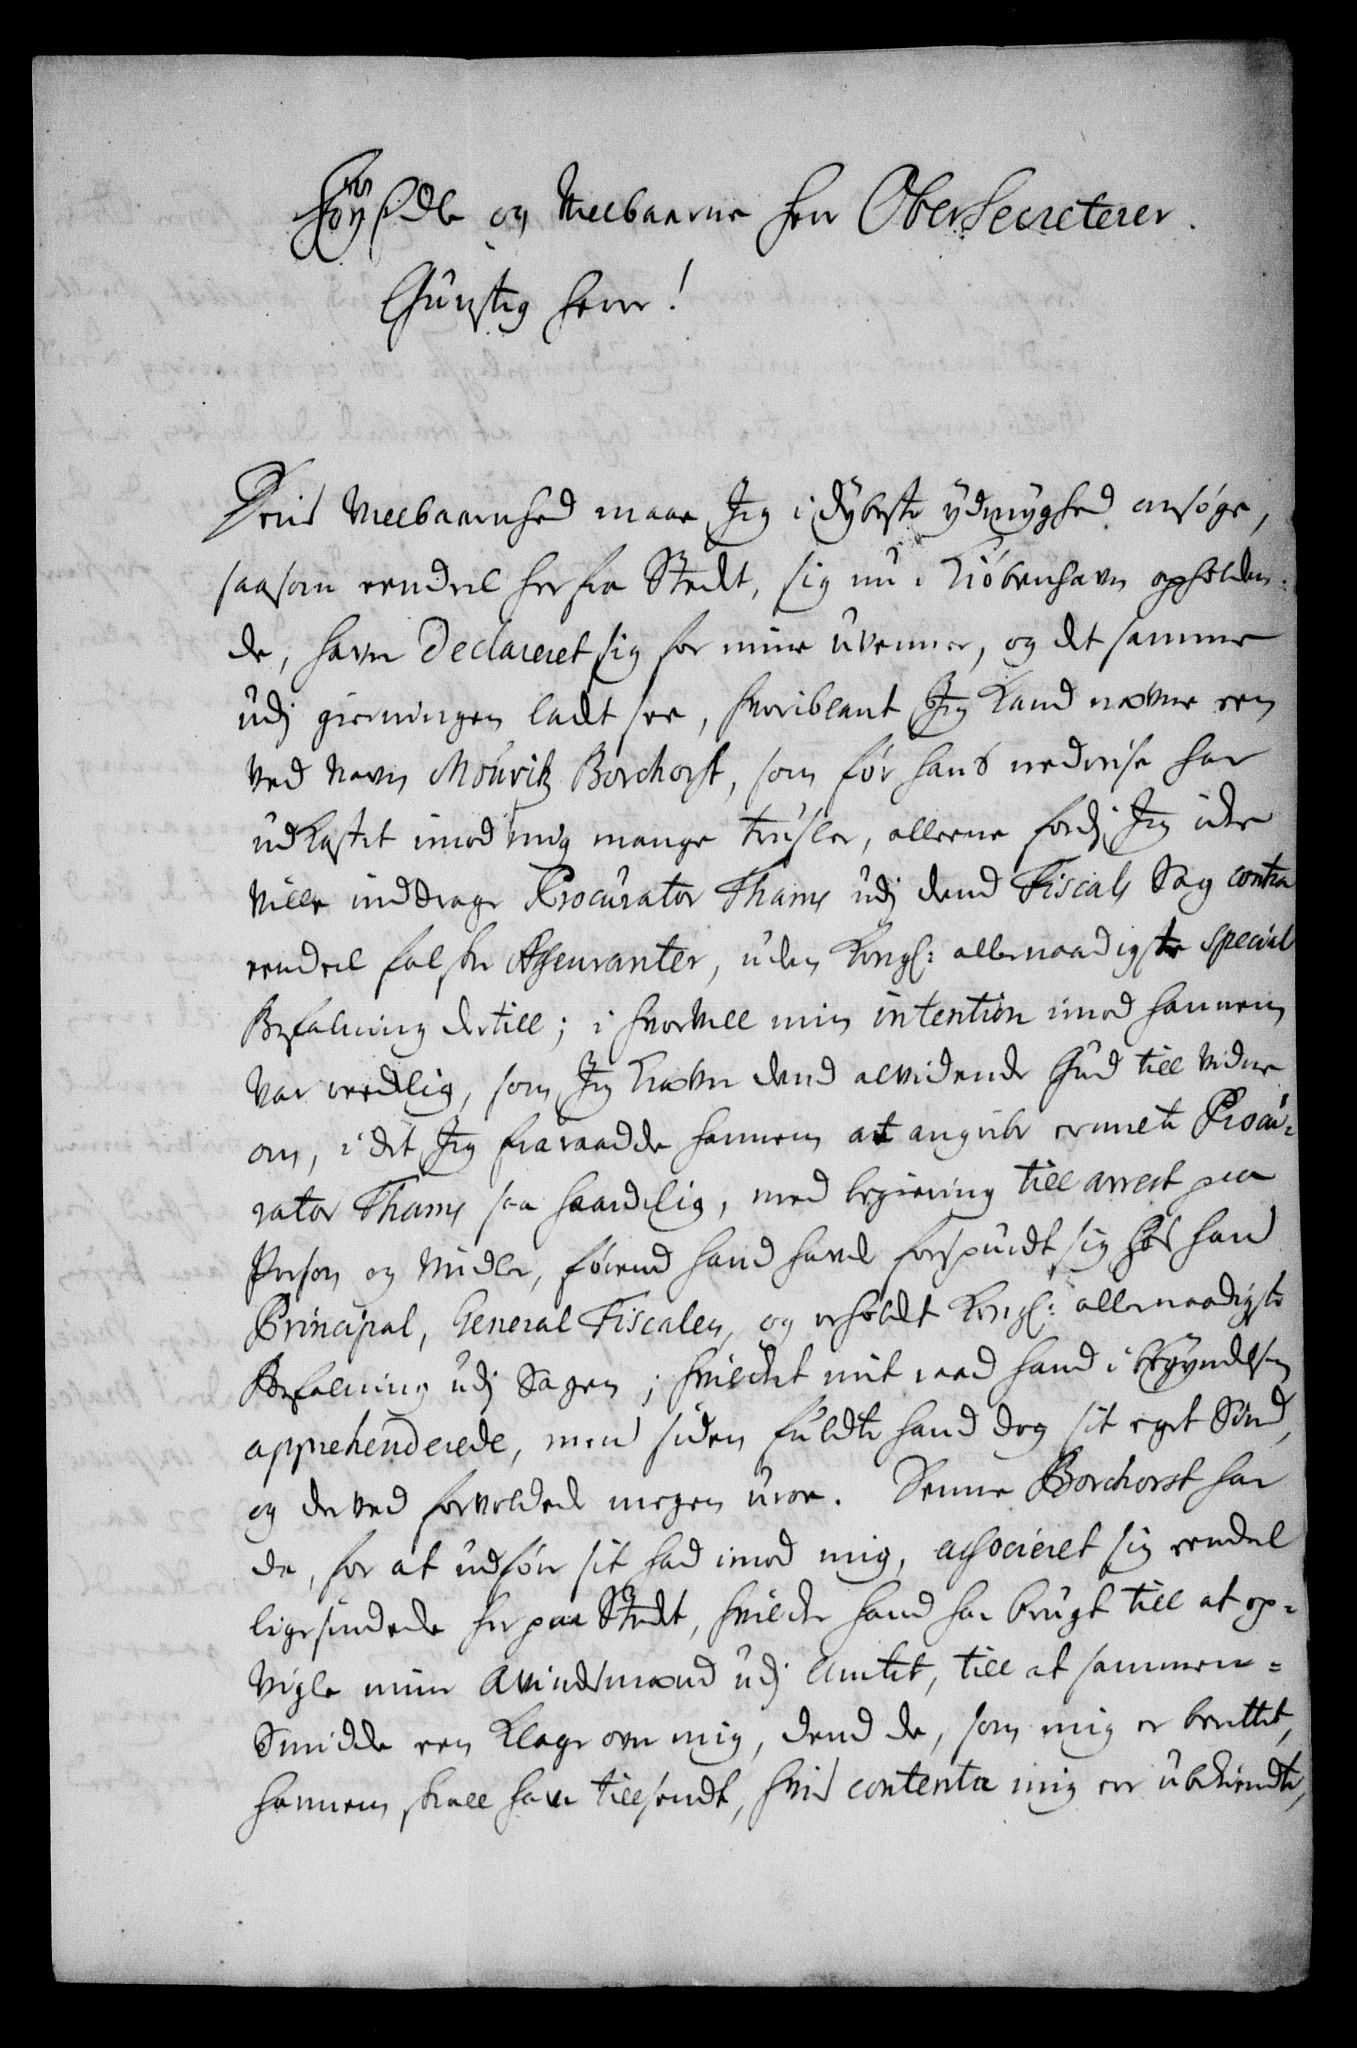 HøyÆdle og Velbaarne Herr OberSecreterer.
Gunstig Herre!
Deris Velbaarnhed maae Jeg i dybeste ydmyghed ansøge,
saasom eendeel her fra Stedet, sig nu i Kiøbenhavn opholden-
de, haver Declareret sig for mine uvenner, og det samme
udj gierningen ladt see, hvoriblant Jeg Kand nævne een
ved Navn Mouritz Borchorst, som før hans nedreise har
udKastet imod mig mange trusler, alleene fordj Jeg icke
ville inddrage Procurator Thams udj dend Fiscals Sag contra
eendeel falske Asseuranter, uden Kongl: allernaadigste Special
Befalning dertill; i hvorvell min intention imod hannem
var reedlig, som Jeg tager dend alvidende Gud till vidne
om, i det Jeg fraraadde hannem at angribe ermelte Procu-
rator Thams saa haardelig, med begiering till arrest paa
Person og Midler, førend hand havde forspurdt sig hos hans
Principal, General Fiscalen, og erholdt Kongl: allernaadigste
Befalning udj Sagen; hvilcket mit raad hand i begyndelsen
apprehenderede, men siden fuldte hand dog sit eget Sind,
og derved forvoldede megen uroe. Denne Borchorst har
da, for at udføre sit had imod mig, associeret sig eendel
ligesindede her paa Stedet, hvilcke hand har brugt till at op-
vigle mine Avindsmænd udj Amtet, till at sammen-
Smidde een Klage over mig, dend de, som mig er berettet,
hannem skall have tillsendt, hvis contenta mig er ubekiendt,